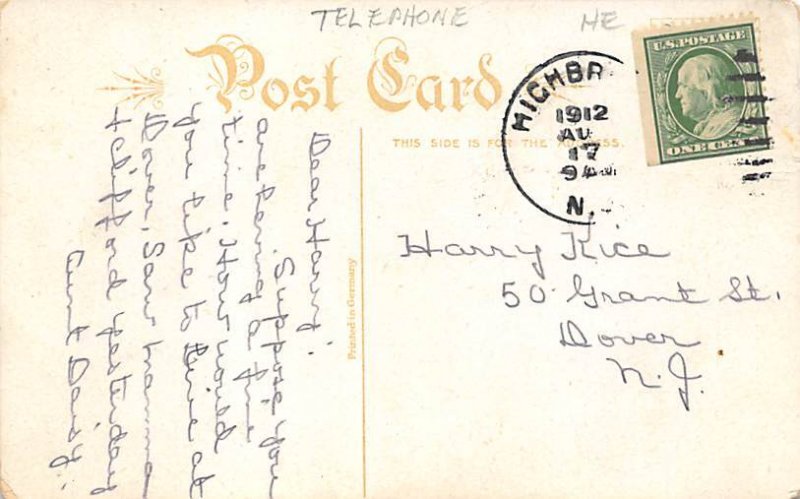 TELEPHONE
ME
Post Card
THIS SIDE IS FOR THE ADDRESS.
U.S. POSTAGE
ONE CENT
HIGHBR
1912
AU
17
9 A
N.
Dear Harry:
Suppose you
are having a fine
time. How would
you like to live at
Dover. Saw mamma
& Clifford yesterday
Aunt Daisy.
Printed in Germany
Harry Rice
50 Grant St.
Dover
N.J.